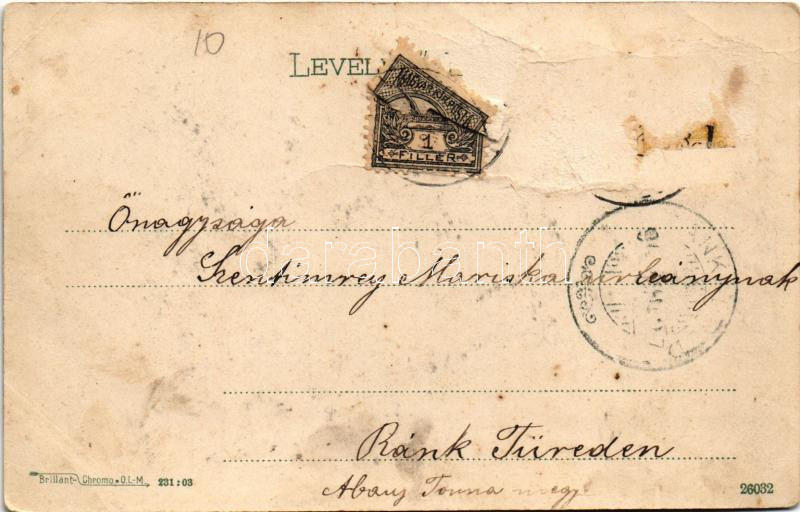 10
LEVEL
MAGYAR KIR. POSTA
1
FILLER
Önagysága
Szentimrey Mariska urleánynak
darabanth
Ránk Füreden
Abauj Torna megye
Brillant-Chromo•O.L-M. 231:03
26032